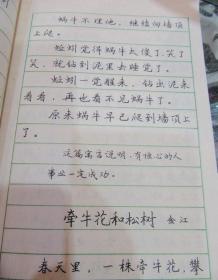 蜗牛不理他，继续向墙顶
上爬。
蚯蚓觉得蜗牛太傻了，笑了
笑，就钻到泥里去睡觉了。
蚯蚓一觉醒来，钻出泥来
看看，再也看不见蜗牛了。
原来蜗牛早已爬到墙顶上
了。
这篇寓言说明，有恒心的人
事业一定成功。
牵牛花和松树 金江
春天里，一株牵牛花，攀